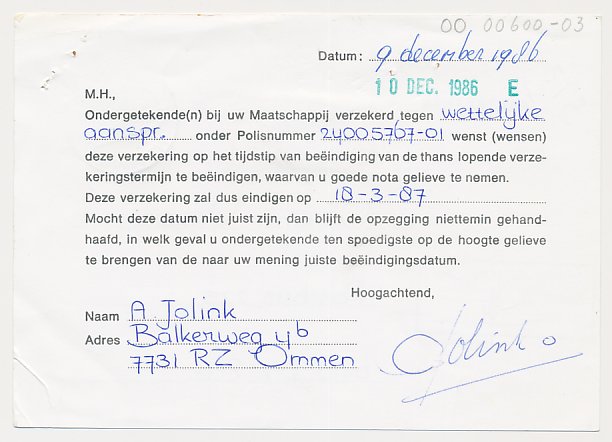 00 00600-03
Datum: 9 december 1986
10 DEC. 1986 E
M.H.,
Ondergetekende(n) bij uw Maatschappij verzekerd tegen wettelijke
aanspr. onder Polisnummer 24005767-01 wenst (wensen)
deze verzekering op het tijdstip van beëindiging van de thans lopende verze-
keringstermijn te beëindigen, waarvan u goede nota gelieve te nemen.
Deze verzekering zal dus eindigen op 18-3-87
Mocht deze datum niet juist zijn, dan blijft de opzegging niettemin gehand-
haafd, in welk geval u ondergetekende ten spoedigste op de hoogte gelieve
te brengen van de naar uw mening juiste beëindigingsdatum.
Hoogachtend,
Naam A Jolink
Adres Balkerweg 4b
7731 RZ Ommen
Jolink